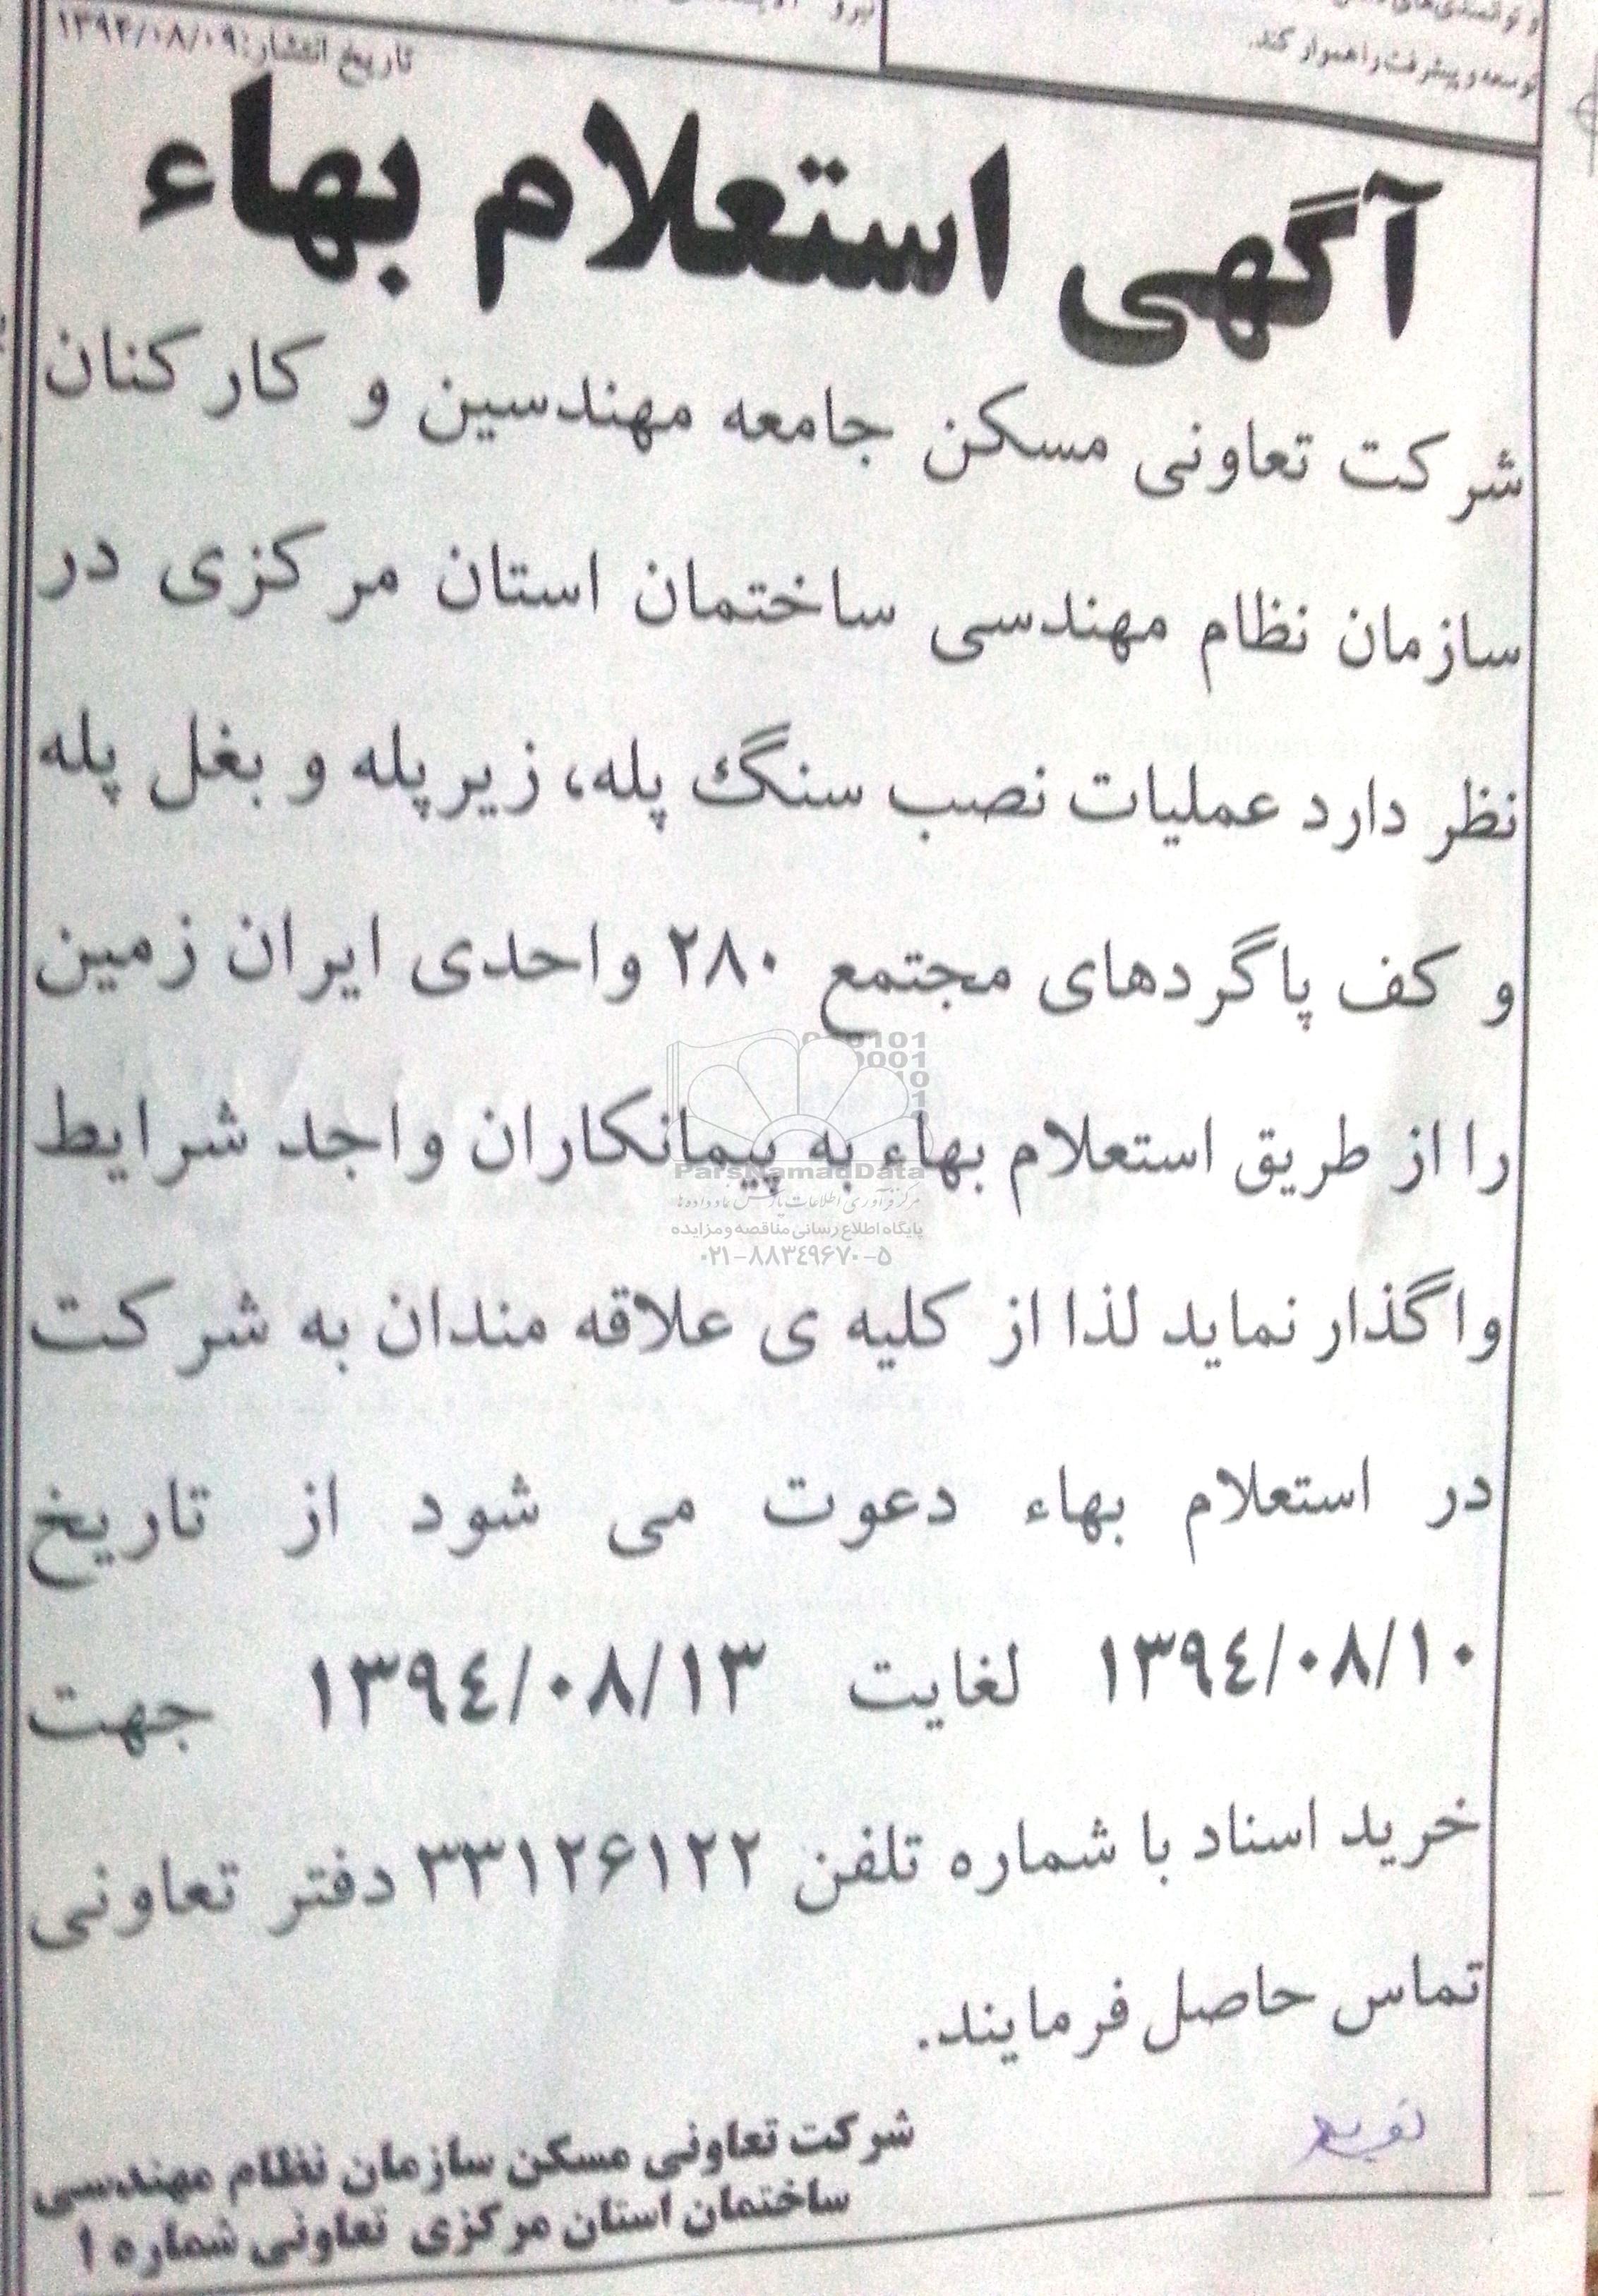 توسعه و پیشرفت را هموار کند.
تاریخ انتشار: ۱۳۹۴/۰۸/۰۹
آگهی استعلام بهاء
شرکت تعاونی مسکن جامعه مهندسین و کارکنان
سازمان نظام مهندسی ساختمان استان مرکزی در
نظر دارد عملیات نصب سنگ پله، زیرپله و بغل پله
و کف پاگردهای مجتمع ۲۸۰ واحدی ایران زمین
را از طریق استعلام بهاء به پیمانکاران واجد شرایط
واگذار نماید لذا از کلیه ی علاقه مندان به شرکت
در استعلام بهاء دعوت می شود از تاریخ
۱۳۹٤/۰۸/۱۰ لغایت ۱۳۹٤/۰۸/۱۳ جهت
خرید اسناد با شماره تلفن ۳۳۱۲۶۱۲۲ دفتر تعاونی
تماس حاصل فرمایند.
شرکت تعاونی مسکن سازمان نظام مهندسی
ساختمان استان مرکزی تعاونی شماره ۱
ParsNamadData
مرکز فرآوری اطلاعات پارس نماد داده ها
پایگاه اطلاع رسانی مناقصه و مزایده
۰۲۱-۸۸۳٤۹۶۷۰-۵